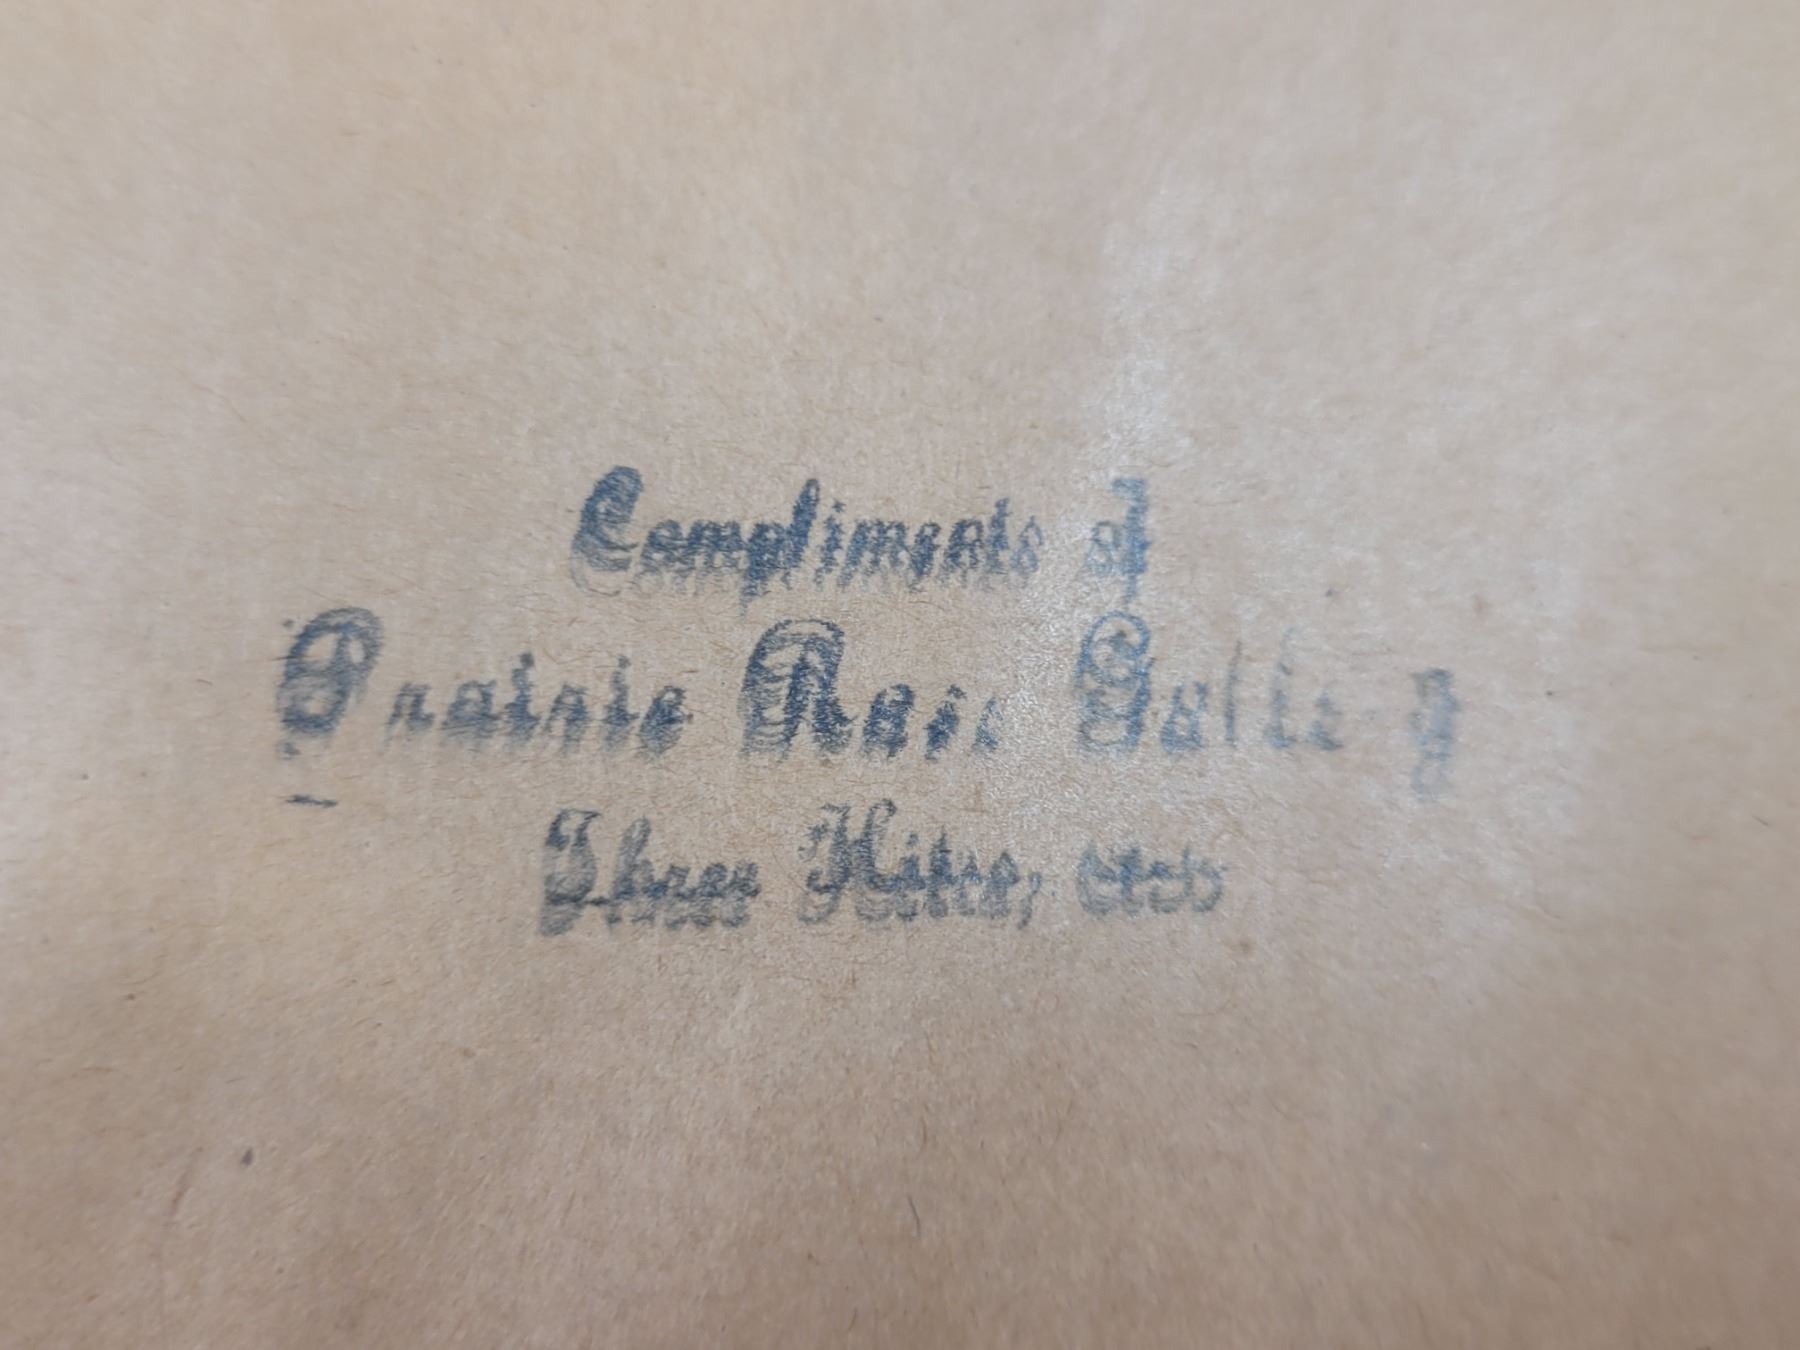 Compliments of
Prairie Rose Galle y
Three Hills,